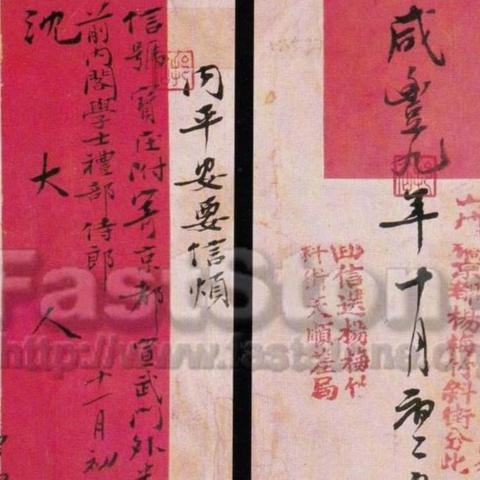 咸豐九年十月初二
內平安要信煩
信號寶庄附寄京都宣武門外
前內閣學士禮部侍郎
沈大人
十一月初
此信送楊梅竹
科街天順差局
京都楊梅竹斜街分此
FastStone
http://www.faststone.org